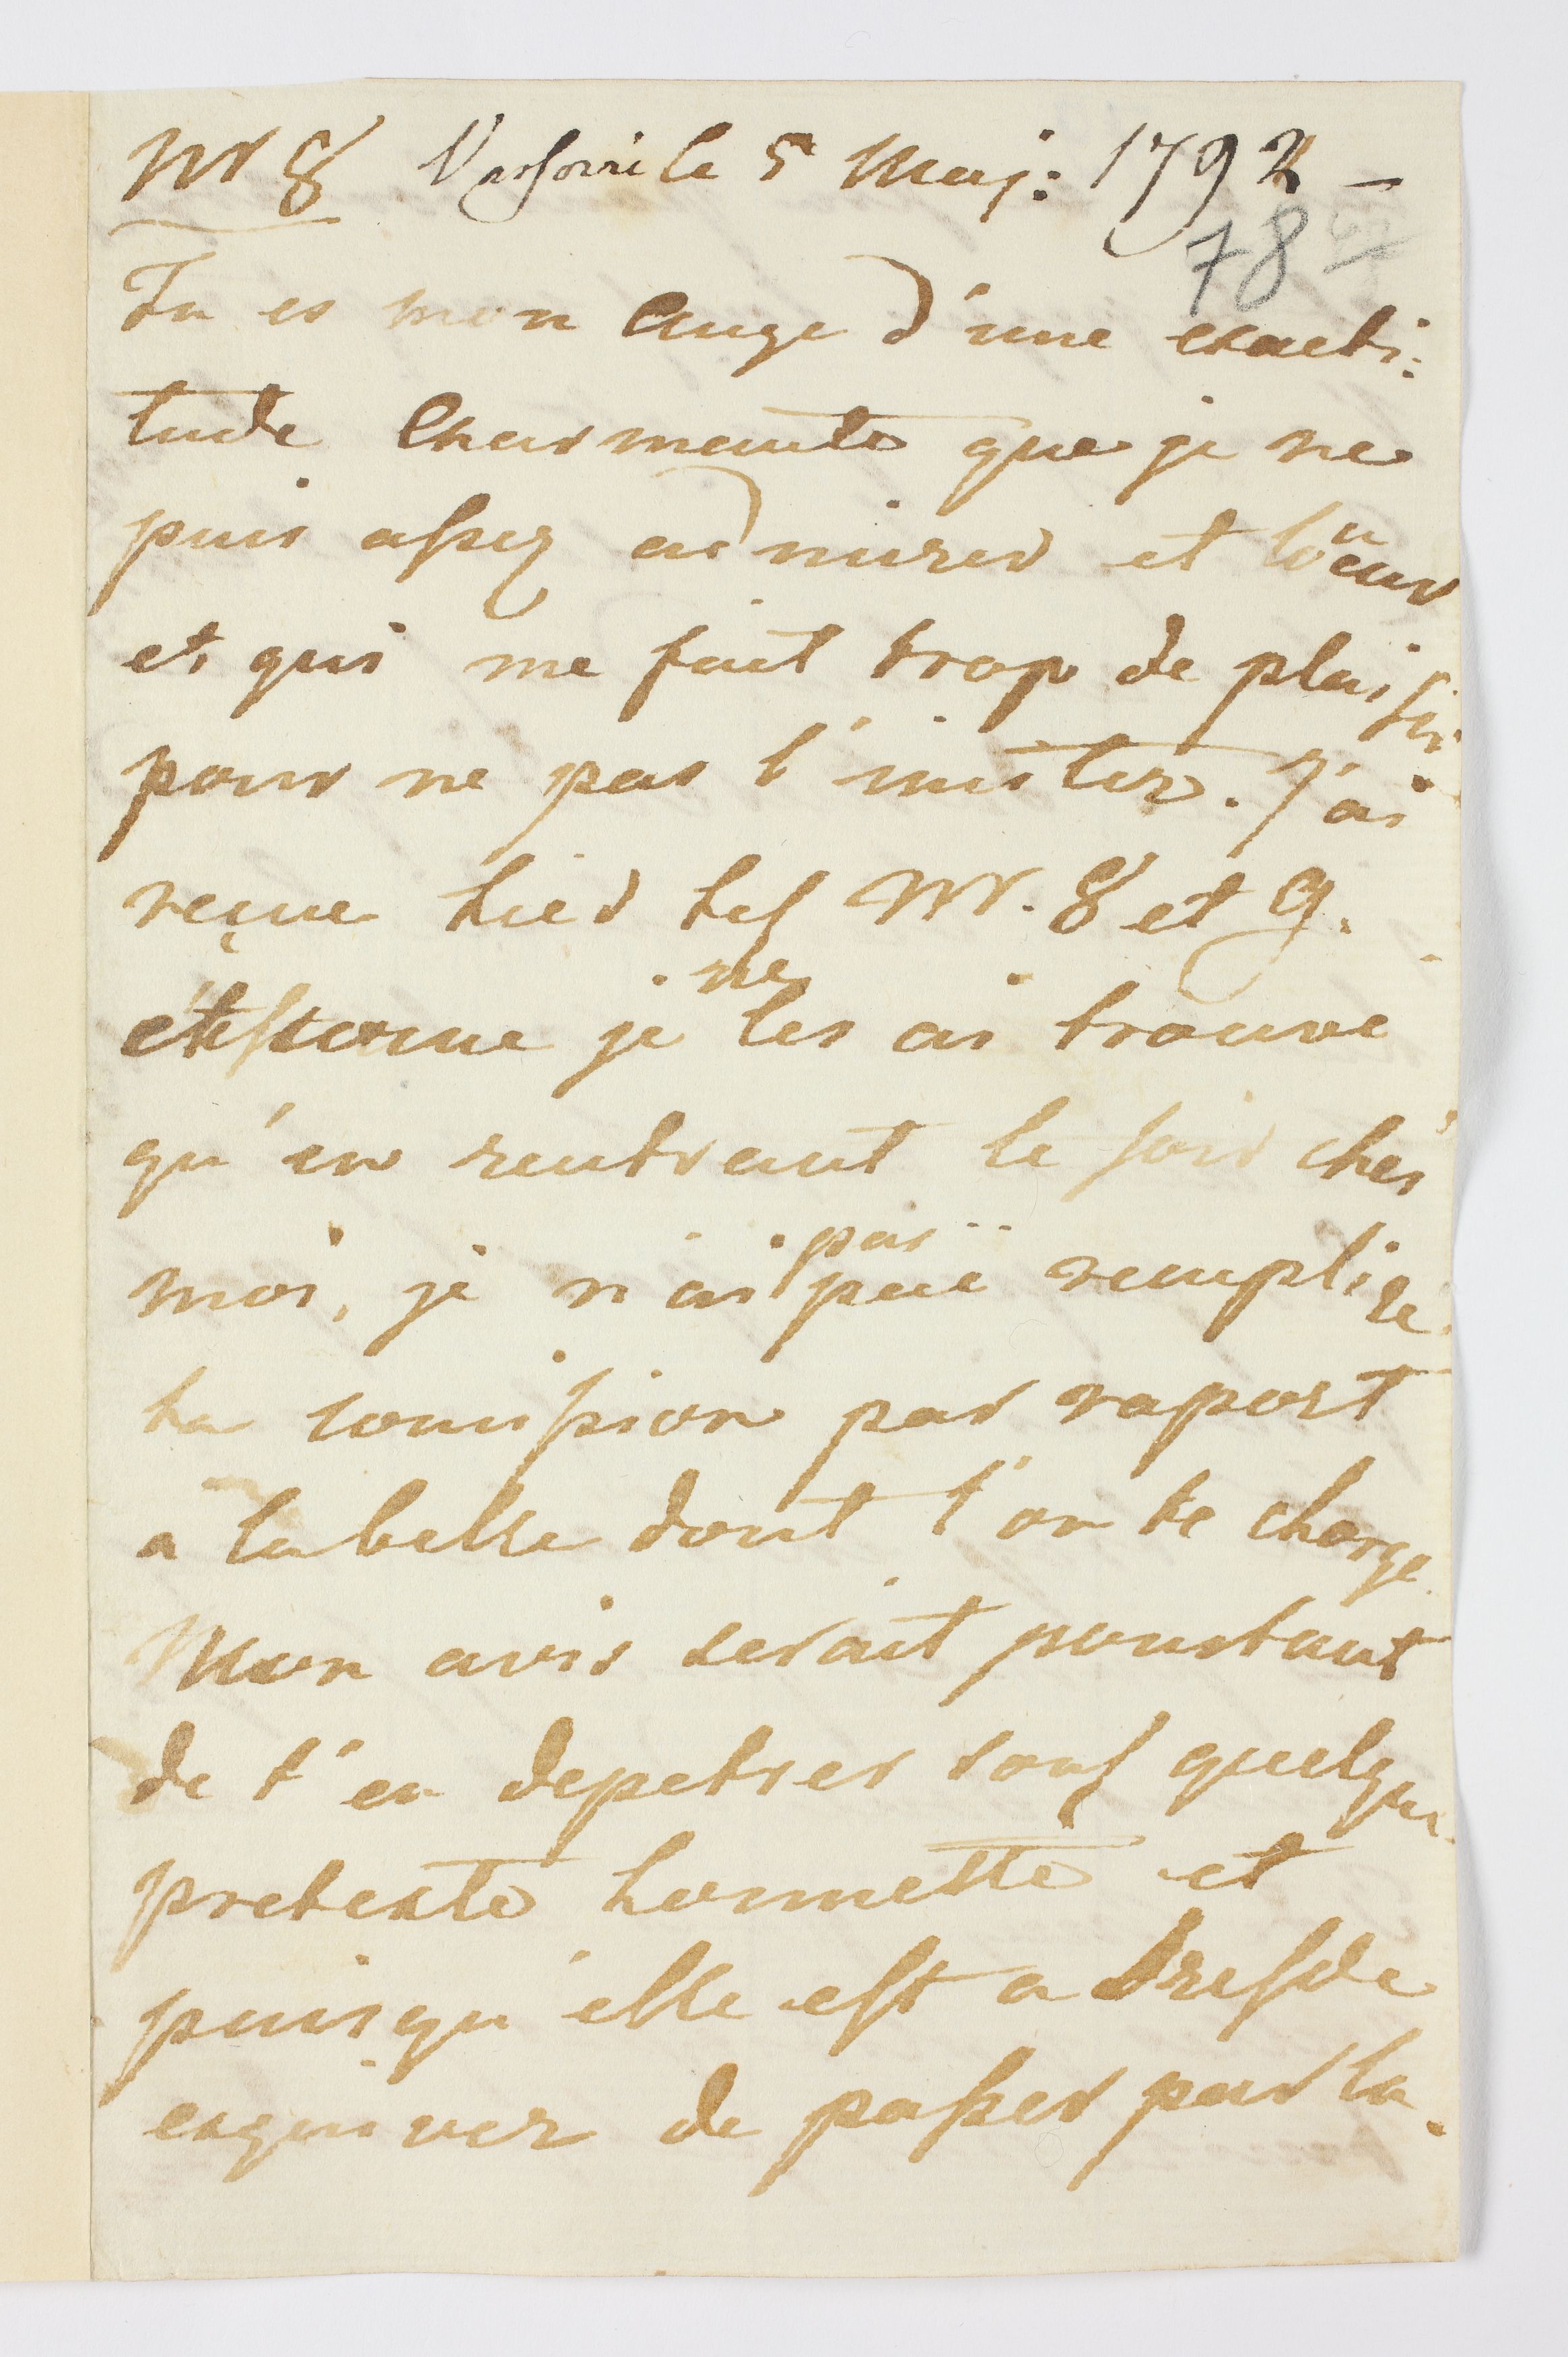 Nr 8 Varsovie le 5 Maj: 1792 —
78
Tu es mon Ange d'une exacti:
tude Charmante que je ne
puis assez admirer et louer
et qui me fait trop de plaisir
pour ne pas l'imiter. J'ai
reçue hier tes Nr. 8 et 9.
et comme je ne les ai trouve
qu'en rentrant le soir chés
moi, je n'ai pas püe remplire
ta comission par raport
a la belle dont l'on te charge
Mon avis serait pourtant
de t'en depetrer sous quelque
pretexte honnette et
puisqu'elle est a Dresde
esquiver de passer par la.